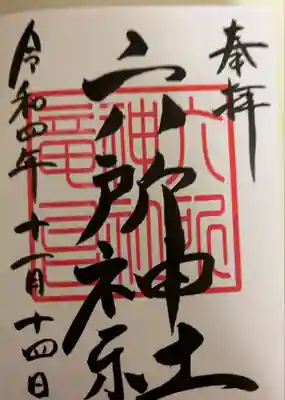 奉拝
六所神社
令和四年十一月十四日
六所
神社